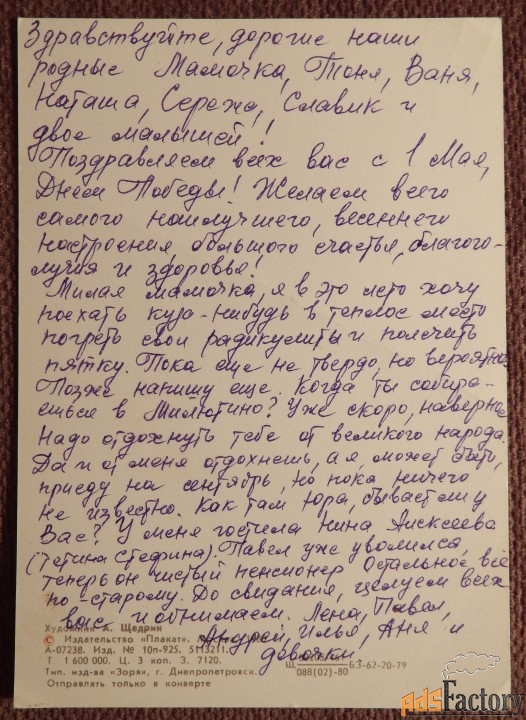 Здравствуйте, дорогие наши
родные Мамочка, Тоня, Ваня,
Наташа, Сережа, Славик и
двое малышей!
Поздравляем всех вас с 1 Мая,
Днем Победы! Желаем всего
самого наилучшего, весеннего
настроения, большого счастья, благопо-
лучия и здоровья!
Милая мамочка, я в это лето хочу
поехать куда-нибудь в теплое место
погреть свои радикулиты и полечить
пятку. Пока еще не твердо, но вероятно.
Позже напишу еще. Когда ты собира-
ешься в Милютино? Уже скоро, наверно.
Надо отдохнуть тебе от великого народа.
Да и от меня отдохнешь, а я может быть,
приеду на сентябрь, но пока ничего
не известно. Как там Юра, бывает ли у
Вас? У меня гостила Нина Алексеева
(Тетина). Павел уже уволился,
теперь он чистый пенсионер. Остальное все
по-старому. До свидания, целуем всех
вас и обнимаем. Лена, Павел,
Андрей, Илья, Аня и
девочки
Художник А. Щедрин
© Издательство «Плакат».
А-07238. Изд. № 10п-925. 5М3211.
Т 1 600 000. Ц. 3 коп. З. 7120.
Тип. изд-ва «Зоря», г. Днепропетровск.
Отправлять только в конверте
Щ
088(02)-80
БЗ-62-20-79
adsFactory